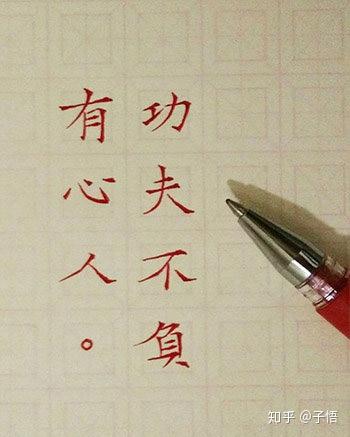 功夫不負
有心人。
知乎 @子悟